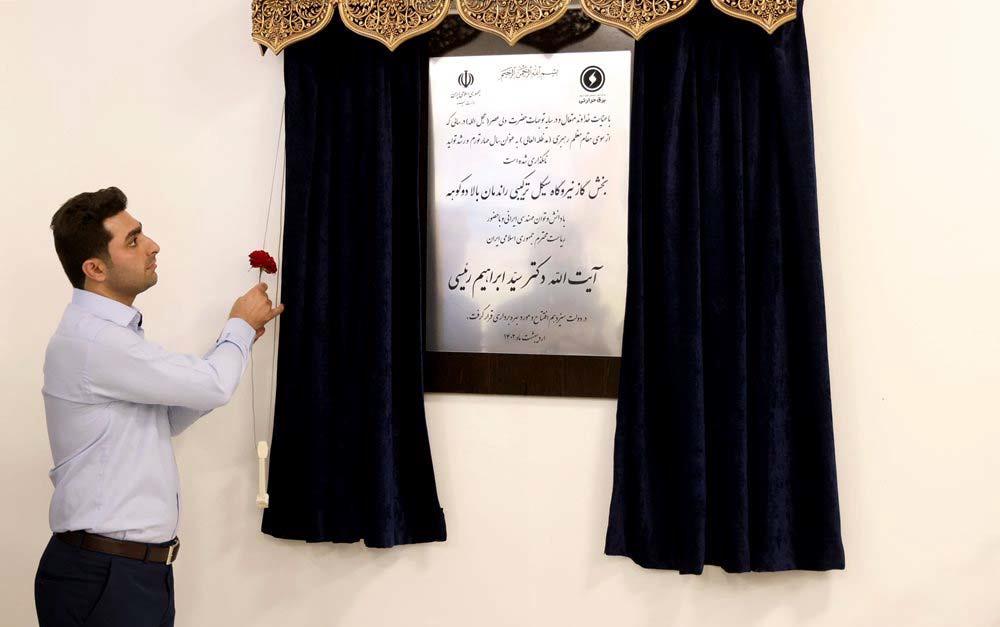 بسم الله الرحمن الرحیم
جمهوری اسلامی ایران
برق حرارتی
با عنایت خداوند متعال و در سایه توجهات حضرت ولی عصر (عجل الله) در سالی که
از سوی مقام معظم رهبری (مدظله العالی) به عنوان سال مهار تورم و رشد تولید
نامگذاری شده است
بخش گاز نیروگاه سیکل ترکیبی راندمان بالا دوکوهه
با دانش و توان مهندسی ایرانی و با حضور
ریاست محترم جمهوری اسلامی ایران
آیت الله دکتر سید ابراهیم رئیسی
در دولت سیزدهم افتتاح و مورد بهره برداری قرار گرفت.
اردیبهشت ماه ۱۴۰۲